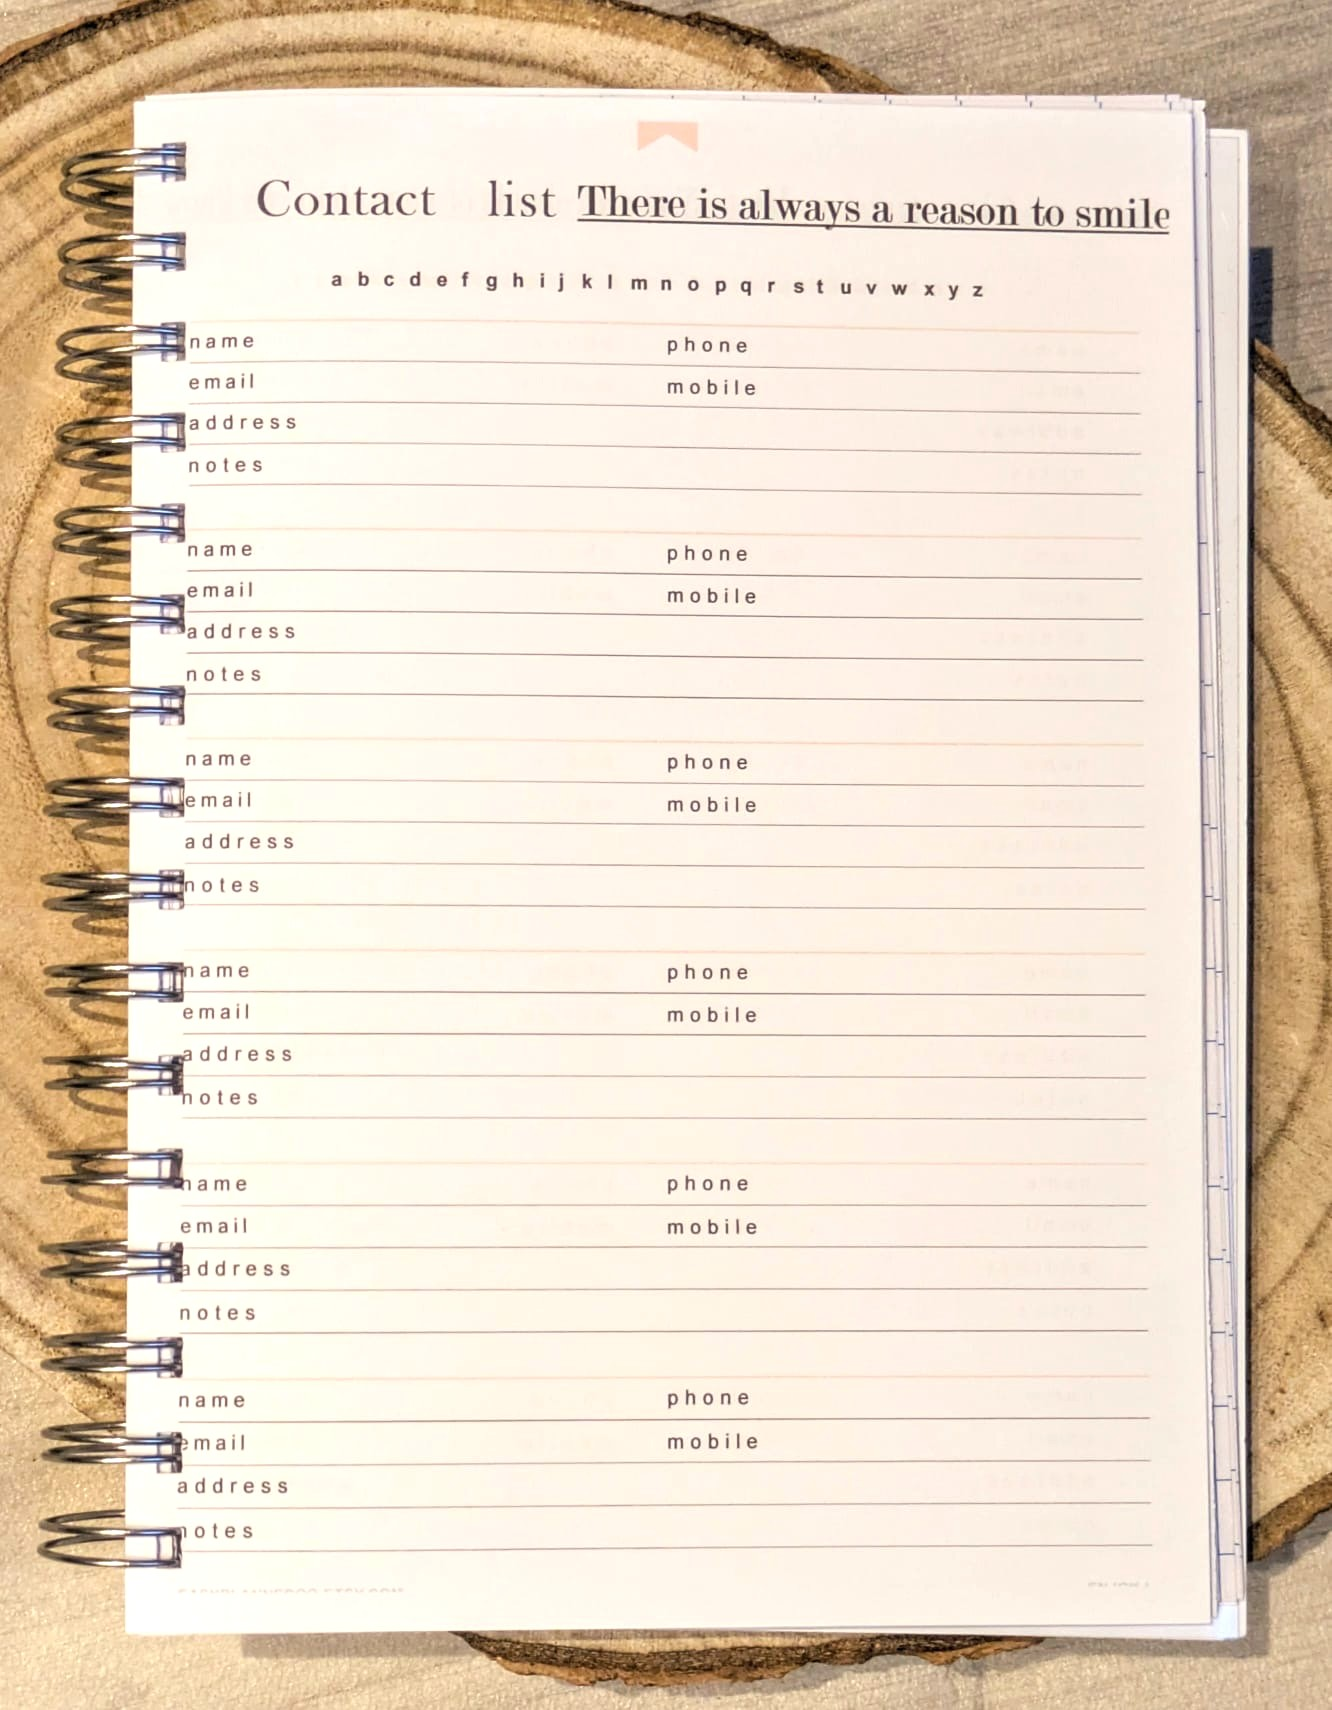 Contact list There is always a reason to smile
a b c d e f g h i j k l m n o p q r s t u v w x y z
name phone
email mobile
address
notes
name phone
email mobile
address
notes
name phone
email mobile
address
notes
name phone
email mobile
address
notes
name phone
email mobile
address
notes
name phone
email mobile
address
notes